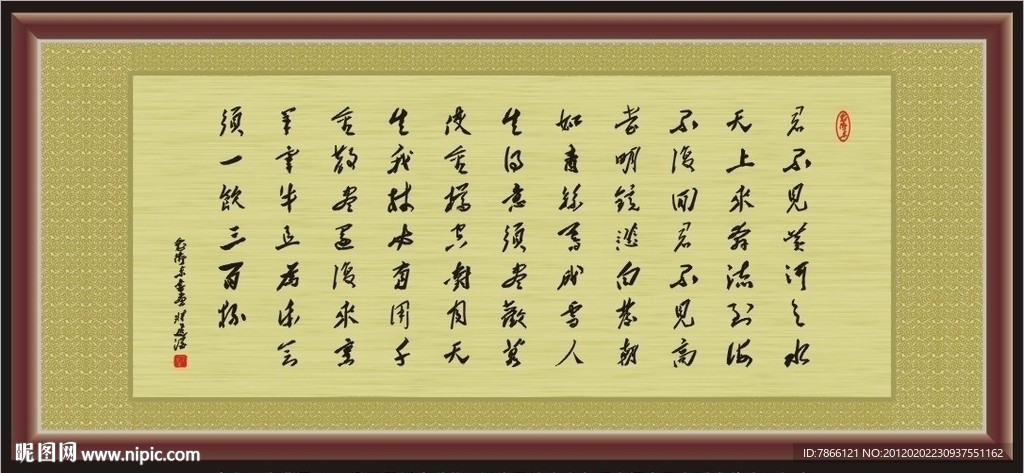 君不見黄河之水
天上来奔流到海
不復回君不見高
堂明鏡悲白髮朝
如青絲暮成雪人
生得意須盡歡莫
使金樽空對月天
生我材必有用千
金散盡還復來烹
羊宰牛且為樂会
須一飲三百杯
昵图网 www.nipic.com
ID:7866121 NO:20120202230937551162